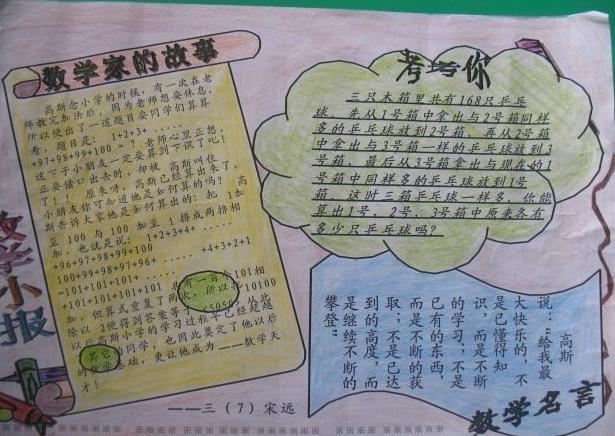 数学家的故事
高斯念小学的时候，有一次在老
师教完加法后，因为老师想要休息，
所以便出了一道题目要同学们算算
看，题目是： 1+2+3+ ......
+97+98+99+100 = ？ 老师心里正想，
这下子小朋友一定要算到下课了吧！
正要借口出去时，却被 高斯叫住
了！！ 原来呀，高斯已经算出来了，
小朋友你可知道他是如何算的吗？ 高
斯告诉大家他是如何算出的：把 1加
至 100 与 100 加至 1 排成两排相
加，也就是说： 1+2+3+4+ ......
+96+97+98+99+100
100+99+98+97+96+ ...... +4+3+2+1
=101+101+101+ ......
+101+101+101+101 共有一百个101相
加，但算式重复了两次，所以把10100
除以 2便得到答案等于 <5050> 从此
以后高斯小学的学习过程早已经超越
了其它的同学，也因此奠定了他以后
的数学基础，更让他成为 ——数学天
才！
——三（7）宋远
考考你
三只木箱里共有168只乒乓
球。先从1号箱中拿出与2号箱同样
多的乒乓球放到2号箱，再从2号箱
中拿出与3号箱一样的乒乓球放到3
号箱，最后从3号箱拿出与现在的1
号箱中同样多的乒乓球放到1号
箱。这时三箱乒乓球一样多，你能
算出1号，2号，3号箱中原来各有
多少只乒乓球吗？
高斯
说：“给我最
大快乐的，不
是已懂得知
识，而是不断
的学习，不是
已有的东西，
而是不断的获
取；不是已达
到的高度，而
是继续不断的
攀登”
数学名言
数学小报